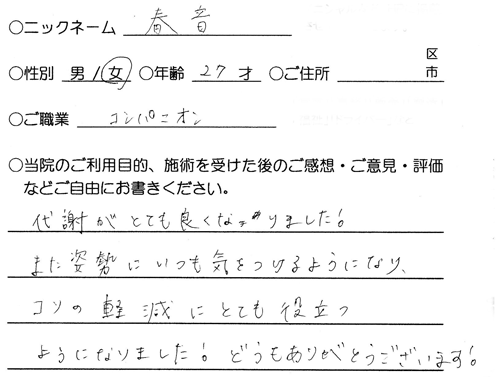 ○ニックネーム 春音
区
○性別 男/女 ○年齢 27才 ○ご住所 市
○ご職業 コンパニオン
○当院のご利用目的、施術を受けた後のご感想・ご意見・評価
などご自由にお書きください。
代謝がとても良くなりました!
また姿勢にいつも気をつけるようになり、
コリの軽減にとても役立つ
ようになりました!どうもありがとうございます!